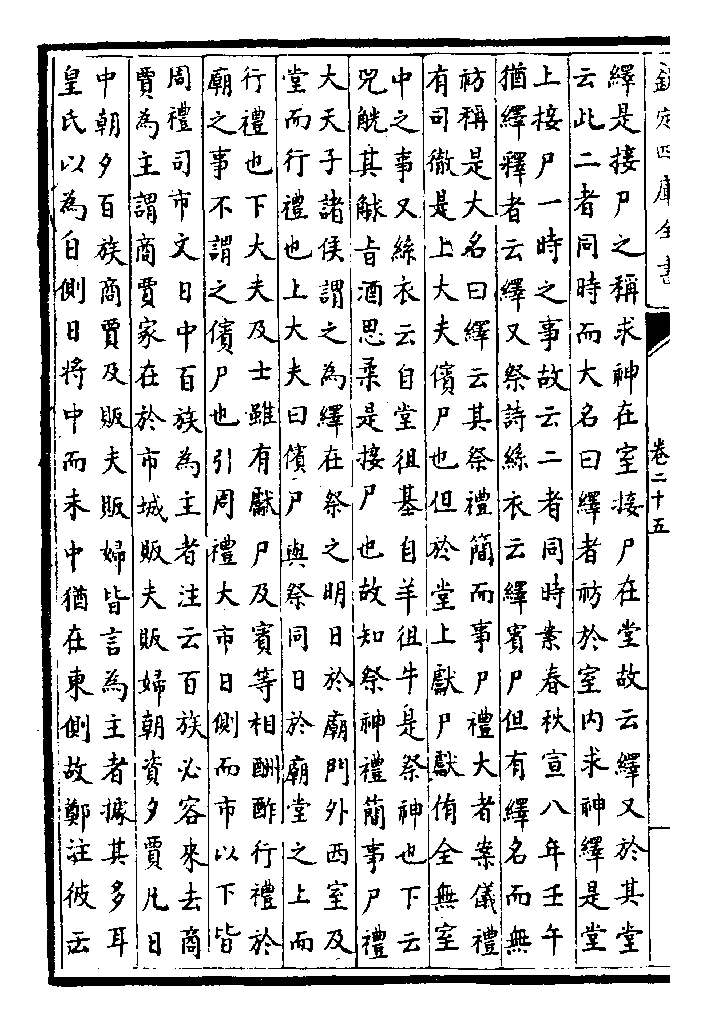 欽定四庫全書
卷二十五
繹是接尸之稱求神在室接尸在堂故云繹又於其堂
云此二者同時而大名曰繹者祊於室内求神繹是堂
上接尸一時之事故云二者同時案春秋宣八年壬午
猶繹釋者云繹又祭詩絲衣云繹賓尸但有繹名而無
祊稱是大名曰繹云其祭禮簡而事尸禮大者案儀禮
有司徹是上大夫儐尸也但於堂上獻尸獻侑全無室
中之事又絲衣云自堂徂基自羊徂牛是祭神也下云
兕觥其觩旨酒思柔是接尸也故知祭神禮簡事尸禮
大天子諸侯謂之為繹在祭之明日於廟門外西室及
堂而行禮也上大夫曰儐尸與祭同日於廟堂之上而
行禮也下大夫及士雖有獻尸及賓等相酬酢行禮於
廟之事不謂之儐尸也引周禮大市日側而市以下皆
周禮司市文日中百族為主者注云百族必容來去商
賈為主謂商賈家在於市城販夫販婦朝資夕賈凡日
中朝夕百族商賈及販夫販婦皆言為主者據其多耳
皇氏以為日側日將中而未中猶在東側故鄭註彼云